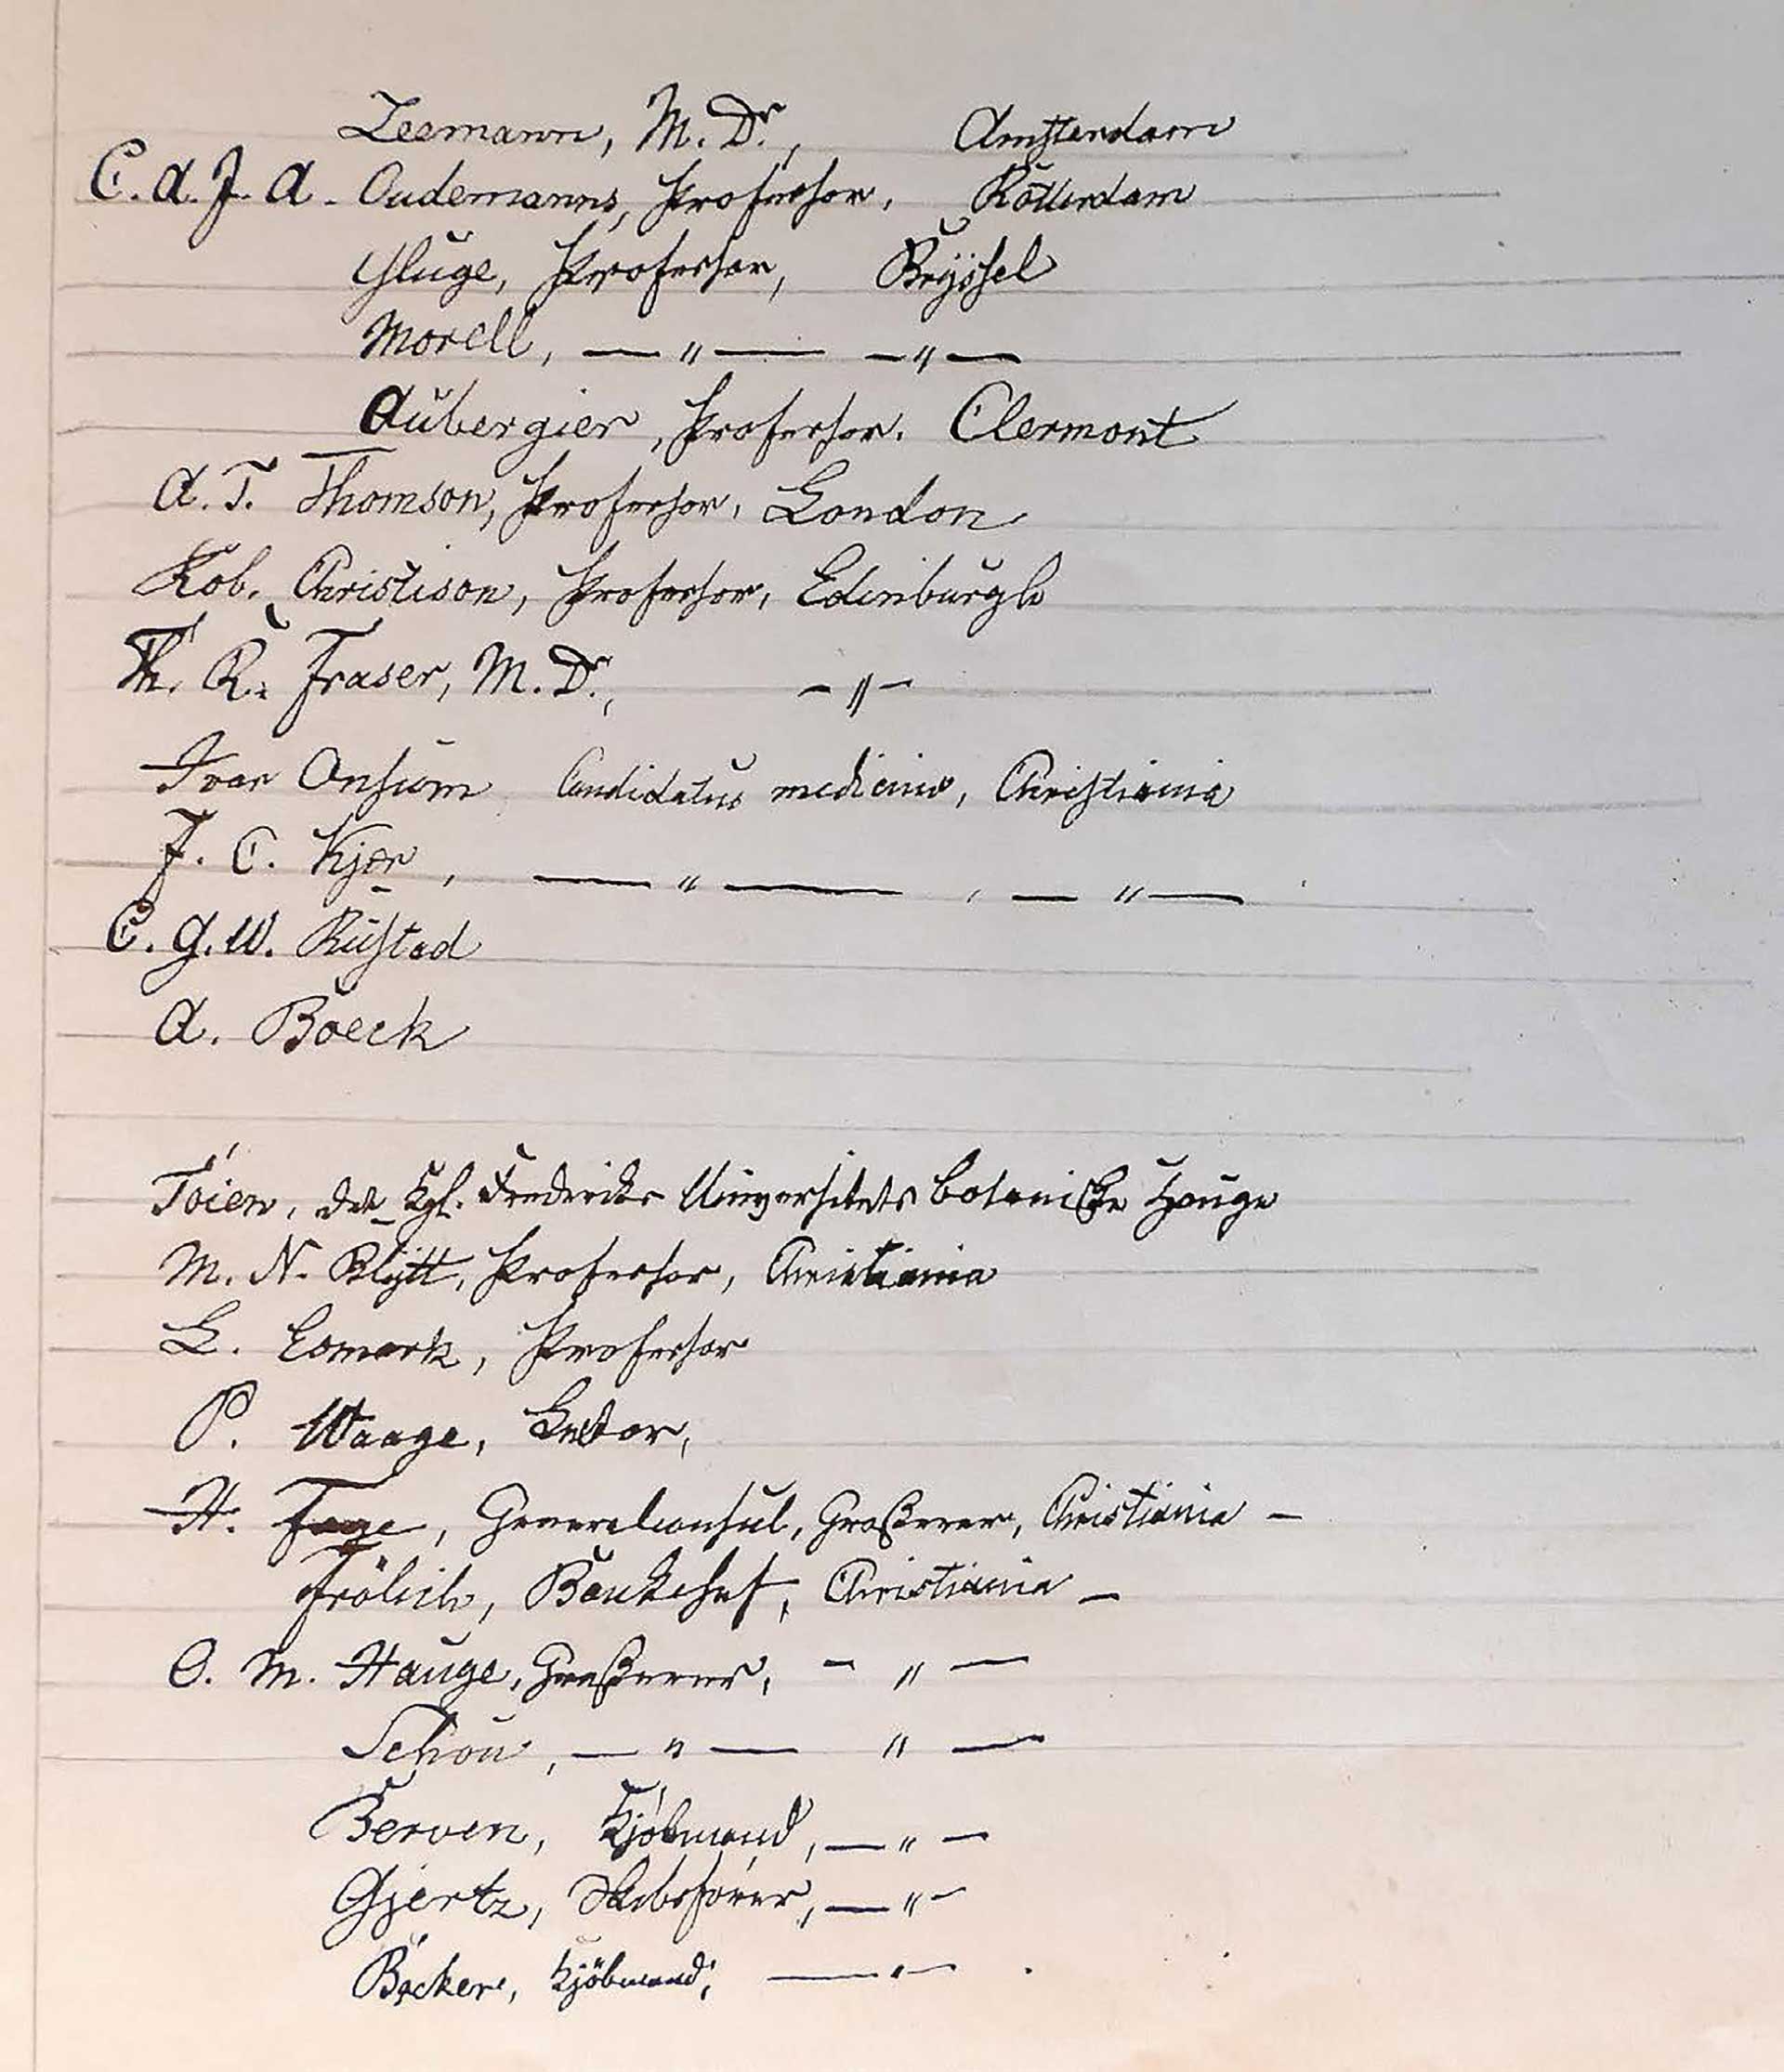 Zeemann, M. Dr., Amsterdam
C. A. J. A. Oudemanns, Professor, Rotterdam
Gluge, Professor, Bryssel
Morell, — " — — " —
Aubergier, Professor. Clermont
A. T. Thomson, Professor, London
Rob. Christison, Professor, Edinburgh
Th. R. Fraser, M. Dr., — " —
Ivar Onsum Candidatus medicinæ, Christiania
J. C. Kjær, — " — , — " —
C. G. W. Rustad
A. Boeck
Tóien, det Kgl. Frederiks Universitets botaniske Hauge
M. N. Blytt, Professor, Christiania
L. Esmark, Professor
P. Waage, Lector,
H. Faye, Generalconsul, Großerer, Christiania —
Frölich, Bankchef, Christiania —
O. M. Hauge, Großerer, — " —
Schou, — " — " —
Berven, Kjóbmand, — " —
Gjertz, Skibsfórer, — " —
Bøcker, Kjöbmand, — " —